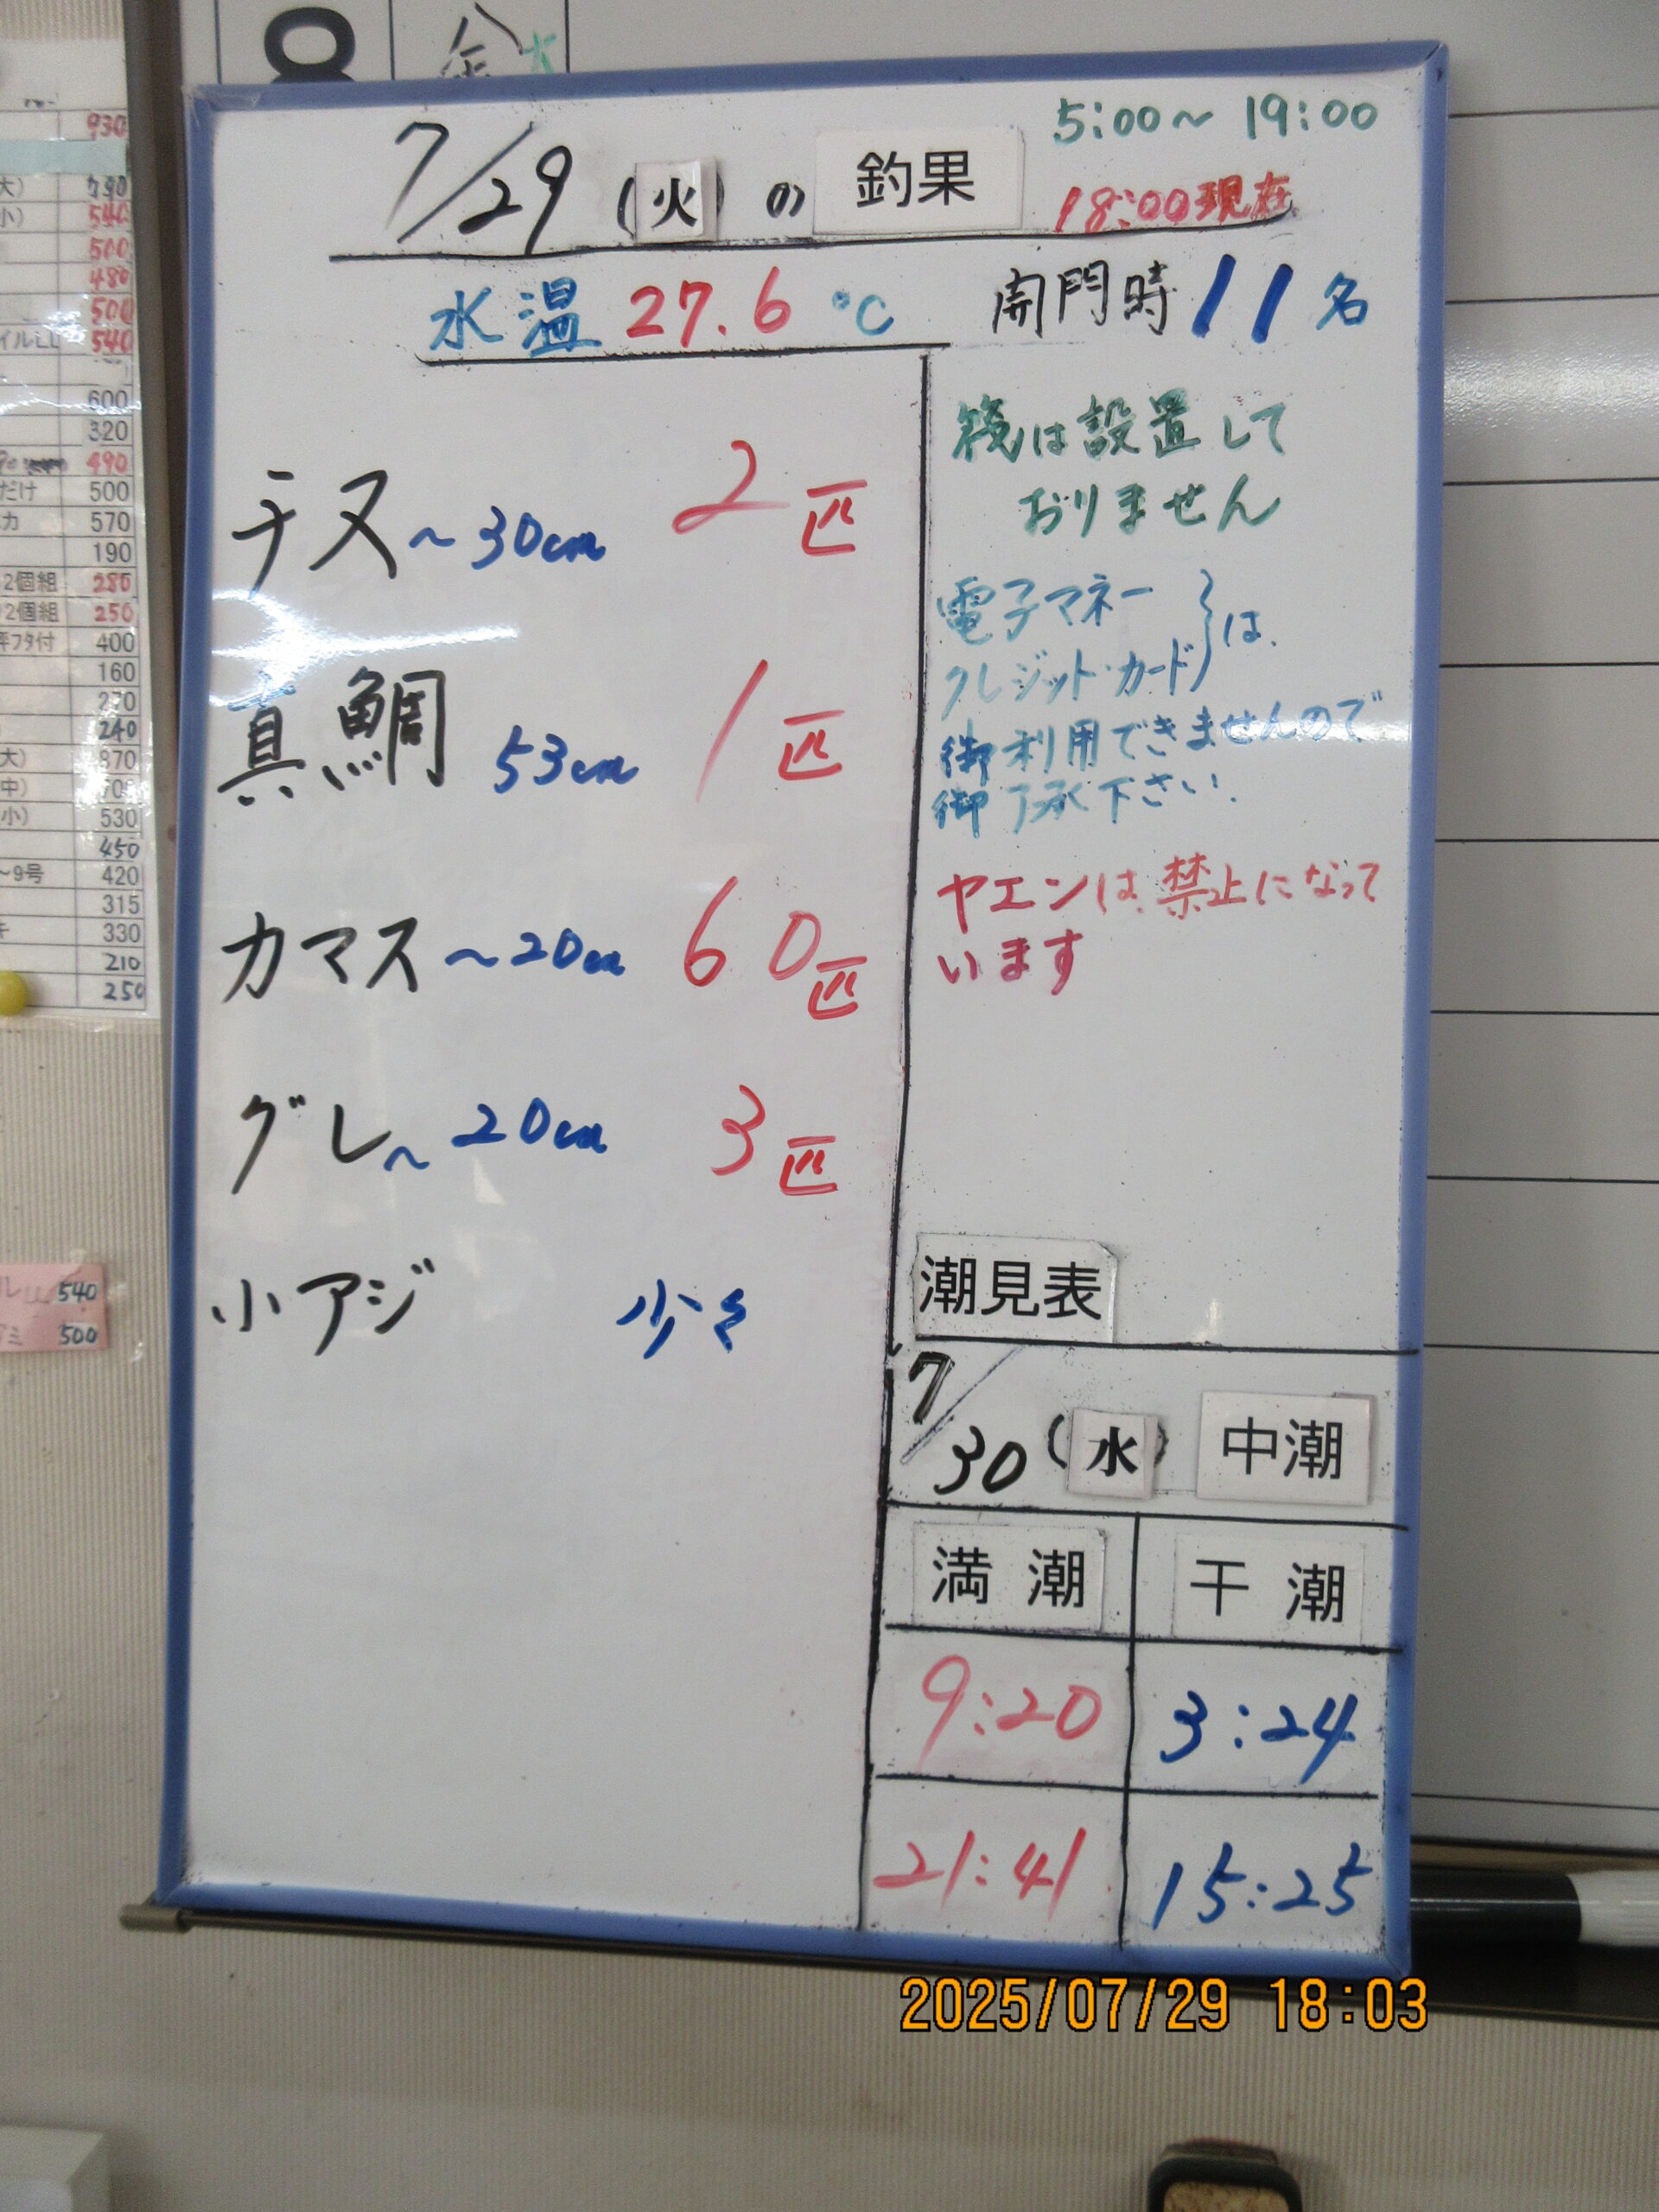 金
5:00～19:00
7/29(火)の 釣果
18:00現在
水温 27.6℃
開門時 11名
チヌ ～30cm 2匹
真鯛 53cm 1匹
カマス ～20cm 60匹
グレ ～20cm 3匹
小アジ 少々
筏は設置して
おりません
電子マネー
クレジット・カード}は、
御利用できませんので
御了承下さい.
ヤエンは、禁止になって
います
潮見表
7/30(水) 中潮
満潮 干潮
9:20 3:24
21:41 15:25
930
大) 790
小) 540
500
480
500
イルLL 540
600
320
490
だけ 500
カ 570
190
2個組 280
2個組 250
フタ付 400
160
270
240
大) 870
中)
小) 530
450
～9号 420
315
330
210
250
540
500
2025/07/29 18:03